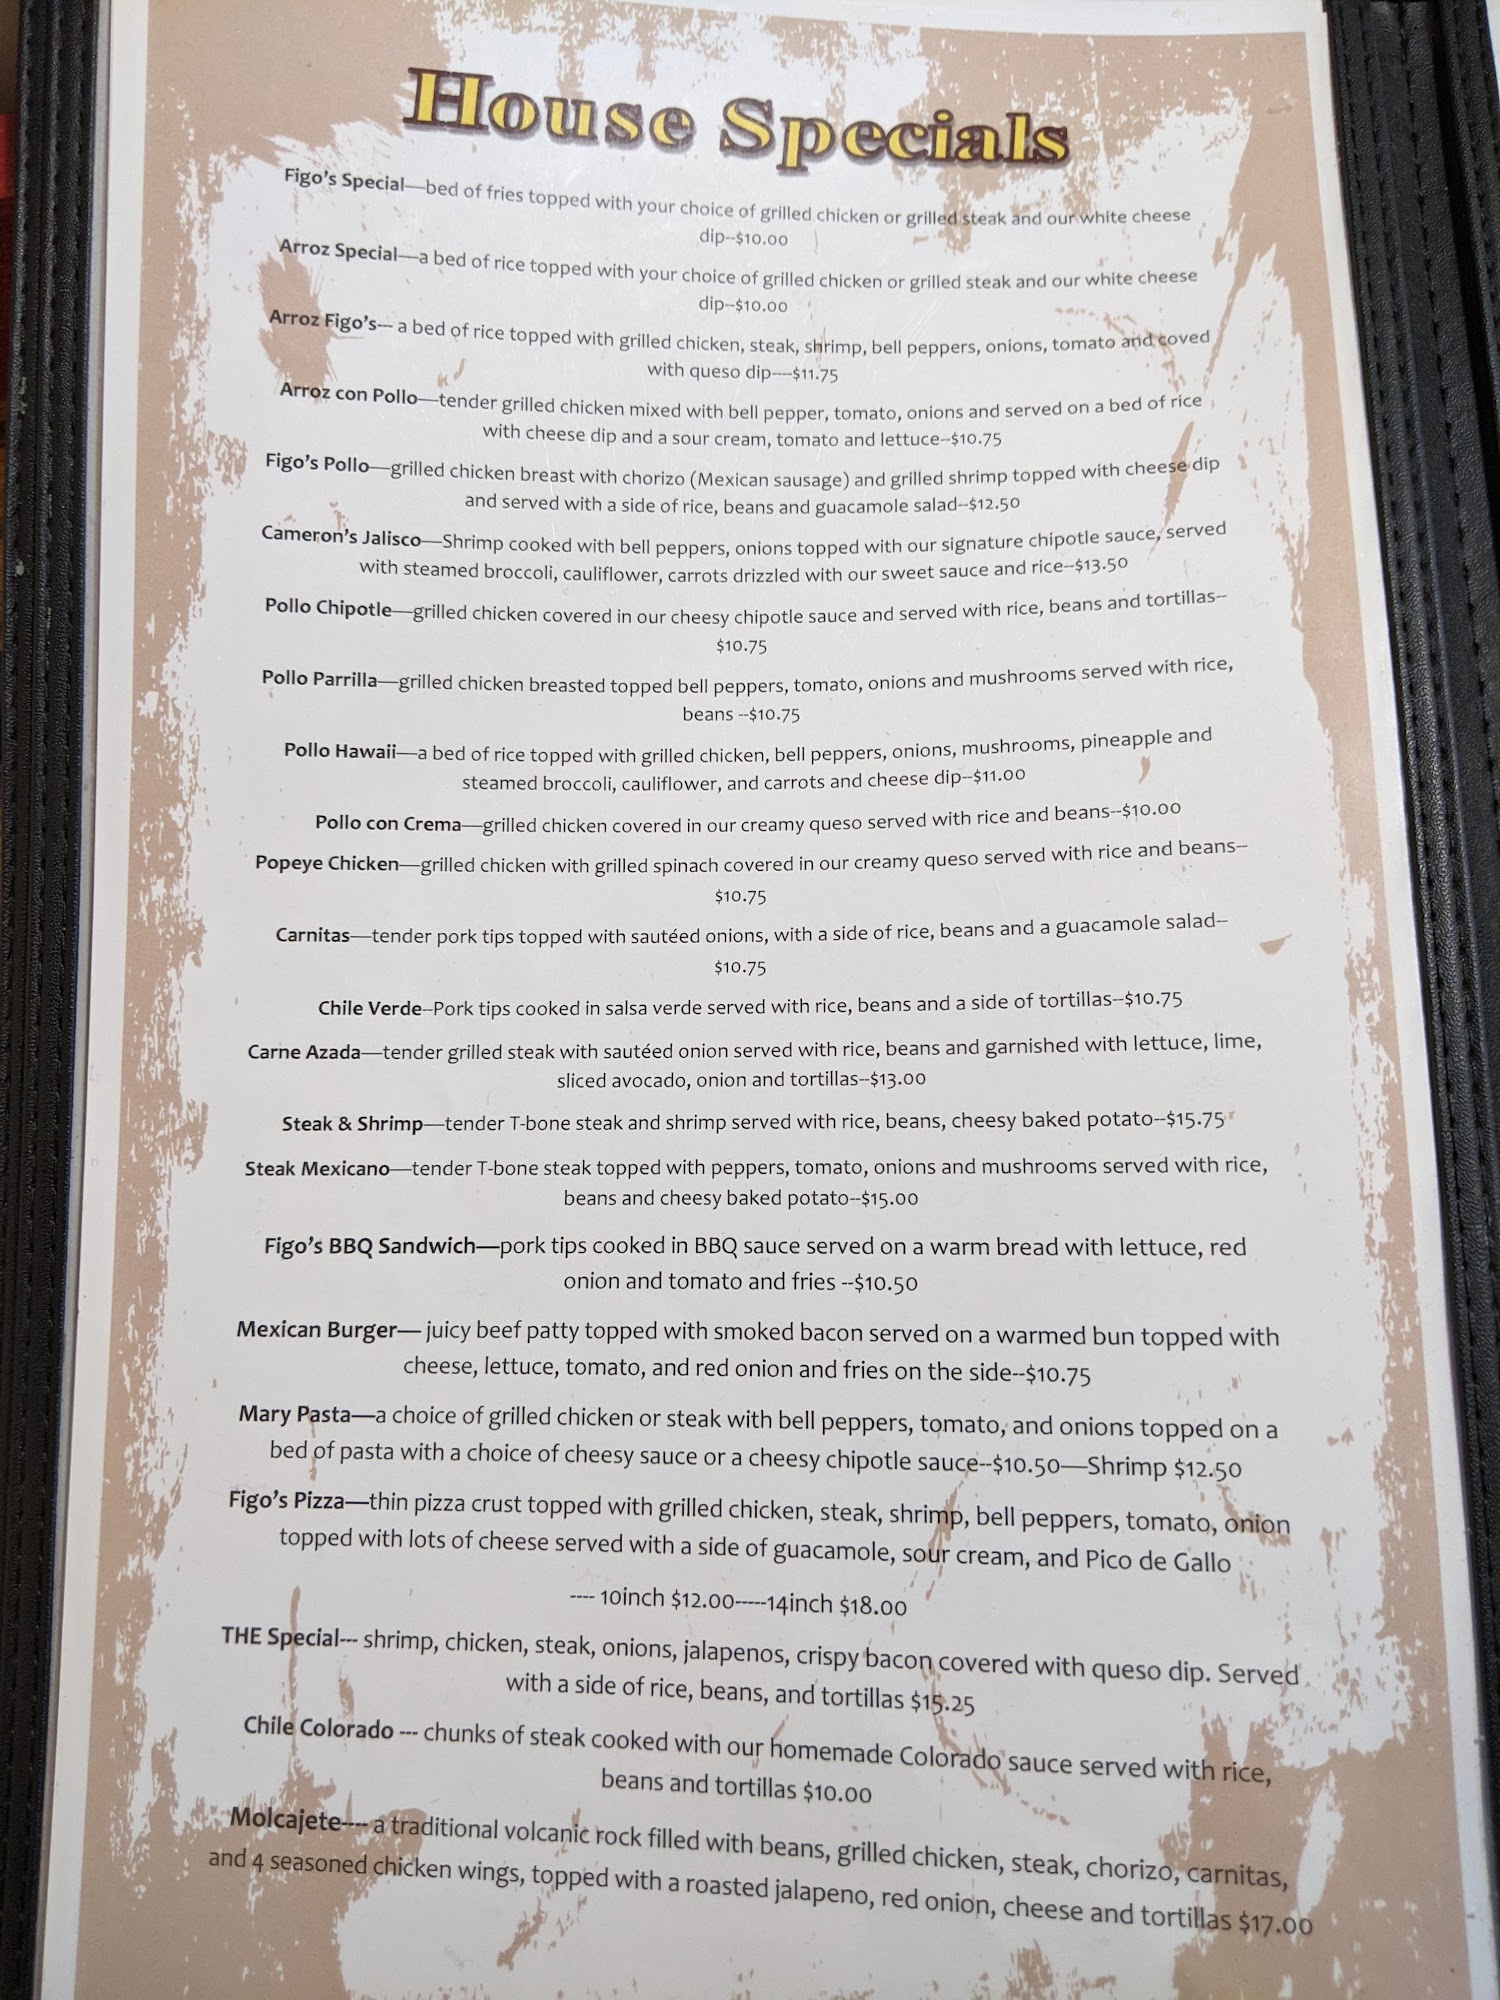 House Specials
Figo's Special—bed of fries topped with your choice of grilled chicken or grilled steak and our white cheese
dip--$10.00
Arroz Special—a bed of rice topped with your choice of grilled chicken or grilled steak and our white cheese
dip--$10.00
Arroz Figo's--- a bed of rice topped with grilled chicken, steak, shrimp, bell peppers, onions, tomato and coved
with queso dip----$11.75
Arroz con Pollo—tender grilled chicken mixed with bell pepper, tomato, onions and served on a bed of rice
with cheese dip and a sour cream, tomato and lettuce--$10.75
Figo's Pollo—grilled chicken breast with chorizo (Mexican sausage) and grilled shrimp topped with cheese dip
and served with a side of rice, beans and guacamole salad--$12.50
Cameron's Jalisco—Shrimp cooked with bell peppers, onions topped with our signature chipotle sauce, served
with steamed broccoli, cauliflower, carrots drizzled with our sweet sauce and rice--$13.50
Pollo Chipotle—grilled chicken covered in our cheesy chipotle sauce and served with rice, beans and tortillas--
$10.75
Pollo Parrilla—grilled chicken breasted topped bell peppers, tomato, onions and mushrooms served with rice,
beans --$10.75
Pollo Hawaii—a bed of rice topped with grilled chicken, bell peppers, onions, mushrooms, pineapple and
steamed broccoli, cauliflower, and carrots and cheese dip--$11.00
Pollo con Crema—grilled chicken covered in our creamy queso served with rice and beans--$10.00
Popeye Chicken—grilled chicken with grilled spinach covered in our creamy queso served with rice and beans--
$10.75
Carnitas—tender pork tips topped with sautéed onions, with a side of rice, beans and a guacamole salad--
$10.75
Chile Verde--Pork tips cooked in salsa verde served with rice, beans and a side of tortillas--$10.75
Carne Azada—tender grilled steak with sautéed onion served with rice, beans and garnished with lettuce, lime,
sliced avocado, onion and tortillas--$13.00
Steak & Shrimp—tender T-bone steak and shrimp served with rice, beans, cheesy baked potato--$15.75
Steak Mexicano—tender T-bone steak topped with peppers, tomato, onions and mushrooms served with rice,
beans and cheesy baked potato--$15.00
Figo's BBQ Sandwich—pork tips cooked in BBQ sauce served on a warm bread with lettuce, red
onion and tomato and fries --$10.50
Mexican Burger— juicy beef patty topped with smoked bacon served on a warmed bun topped with
cheese, lettuce, tomato, and red onion and fries on the side--$10.75
Mary Pasta—a choice of grilled chicken or steak with bell peppers, tomato, and onions topped on a
bed of pasta with a choice of cheesy sauce or a cheesy chipotle sauce--$10.50—Shrimp $12.50
Figo's Pizza—thin pizza crust topped with grilled chicken, steak, shrimp, bell peppers, tomato, onion
topped with lots of cheese served with a side of guacamole, sour cream, and Pico de Gallo
---- 10inch $12.00-----14inch $18.00
THE Special--- shrimp, chicken, steak, onions, jalapenos, crispy bacon covered with queso dip. Served
with a side of rice, beans, and tortillas $15.25
Chile Colorado --- chunks of steak cooked with our homemade Colorado sauce served with rice,
beans and tortillas $10.00
Molcajete---- a traditional volcanic rock filled with beans, grilled chicken, steak, chorizo, carnitas,
and 4 seasoned chicken wings, topped with a roasted jalapeno, red onion, cheese and tortillas $17.00